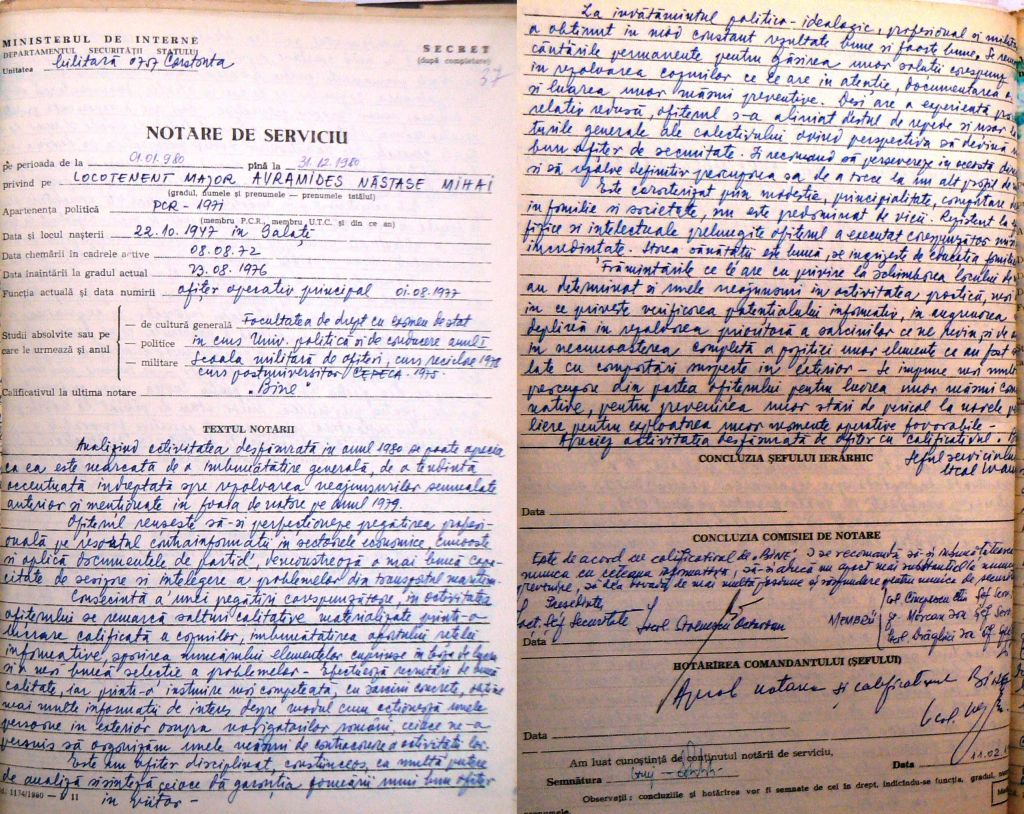 MINISTERUL DE INTERNE
DEPARTAMENTUL SECURITĂȚII STATULUI
Unitatea Militară 0757 Constanta
SECRET
(după completare)
37
NOTARE DE SERVICIU
pe perioada de la 01.01.980 pînă la 31.12.1980
privind pe LOCOTENENT MAJOR AVRAMIDES NĂSTASE MIHAI
(gradul, numele și prenumele — prenumele tatălui)
Apartenența politică PCR - 1971
(membru P.C.R., membru U.T.C. și din ce an)
Data și locul nașterii 22.10.1947 in Galați
Data chemării în cadrele active 08.08.72
Data înaintării la gradul actual 23.08.1976
Funcția actuală și data numirii ofițer operativ principal 01.08.1977
Studii absolvite sau pe care le urmează și anul
— de cultură generală Facultatea de drept cu examen de stat
— politice in curs Univ. politică si de conducere anul I
— militare Școala militară de ofiteri, curs reciclare 1978
curs postuniversitar CEPECA - 1975.
Calificativul la ultima notare "Bine"
TEXTUL NOTĂRII
Analizind activitatea desfăsurată in anul 1980 se poate aprecia
ca ea este marcată de o imbunătătire generală, de o tendintă
accentuată indreptată spre rezolvarea neajunsurilor semnalate
anterior si mentionate in foaia de notare pe anul 1979.
Ofiterul reuseste să-si perfectioneze pregătirea profesi-
onală pe profilul contrainformatii in sectoarele economice. Cunoaste
si aplică documentele de partid, demonstrează o mai bună capa-
citate de sesizare si intelegere a problemelor din transportul maritim
Consecintă a unei pregătiri corespunzătoare, in activitatea
ofiterului se remarcă salturi calitative materializate printr-o
lucrare calificată a cazurilor, imbunătătirea aportului retelei
informative, sporirea numărului elementelor cuprinse in baza de lucru
si o mai bună selectie a problemelor - Efectuează recrutări de bună
calitate, iar printr-o instruire mai competentă, cu sarcini concrete, obtine
mai multe informatii de interes despre modul cum actionează unele
persoane in exterior asupra navigatorilor români, ceiace ne-a
permis să organizăm unele măsuri de contracarare a activitătii lor.
Este un ofiter disciplinat, constiincios, cu multă putere
de analiză si sinteză, ceiace dă garantia formării unui bun ofiter
in viitor -
d. 1174/1980 — 11
La invătămîntul politico-ideologic, profesional si militar
a obtinut in mod constant rezultate bune si foarte bune. Se
căutările permanente pentru găsirea unor solutii corespun
in rezolvarea cazurilor ce le are in atentie, documentarea
si luarea unor măsuri preventive. Desi are o experientă
relativ redusă, ofiterul s-a aliniat destul de repede si usor
turile generale ale colectivului avind perspectiva să devină
bun ofiter de securitate. Ii recomand să persevereze in această
si să rezolve definitiv preocuparea sa de a trece la un alt profil de
Este caracterizat prin modestie, principialitate, comportare
in familie si societate, nu este predominat de vicii. Rezistent la
fizice si intelectuale prelungite ofiterul a executat corespunzător
incredintate. Starea sănătătii este bună, se ingrijeste de educatia familiei
Frămintările ce le are cu privire la schimbarea locului de
au determinat si unele neajunsuri in activitatea practică, mai
in ce priveste verificarea potentialului informativ, in angrenarea
deplină in rezolvarea prioritară a sarcinilor ce ne revin si
in necunoasterea completă a pozitiei unor elemente ce au fost
late cu comportări suspecte in exterior - Se impune mai multă
preocupare din partea ofiterului pentru luarea unor măsuri
native, pentru prevenirea unor stări de pericol la navele
liere pentru exploatarea unor momente operative favorabile -
Apreciez activitatea desfăsurată de ofiter cu calificativul
Seful serviciului
CONCLUZIA ȘEFULUI IERARHIC
Data
CONCLUZIA COMISIEI DE NOTARE
Este de acord cu calificativul de "BINE". I se recomandă să-si imbunătătească
munca cu reteaua informativă, să-si aducă un aport mai substantial la munca
prevenire, să dea dovadă de mai multă pasiune si răspundere pentru munca de securitate
Presedinte,
Loct. Sef Securitate
MEMBRII
Data
HOTĂRÎREA COMANDANTULUI (ȘEFULUI)
Aprob notarea și calificativul Bine
Data
Am luat cunoștință de conținutul notării de serviciu,
Semnătura
Data 11.02.
Observații: concluziile și hotărîrea vor fi semnate de cei în drept, indicîndu-se funcția, gradul,